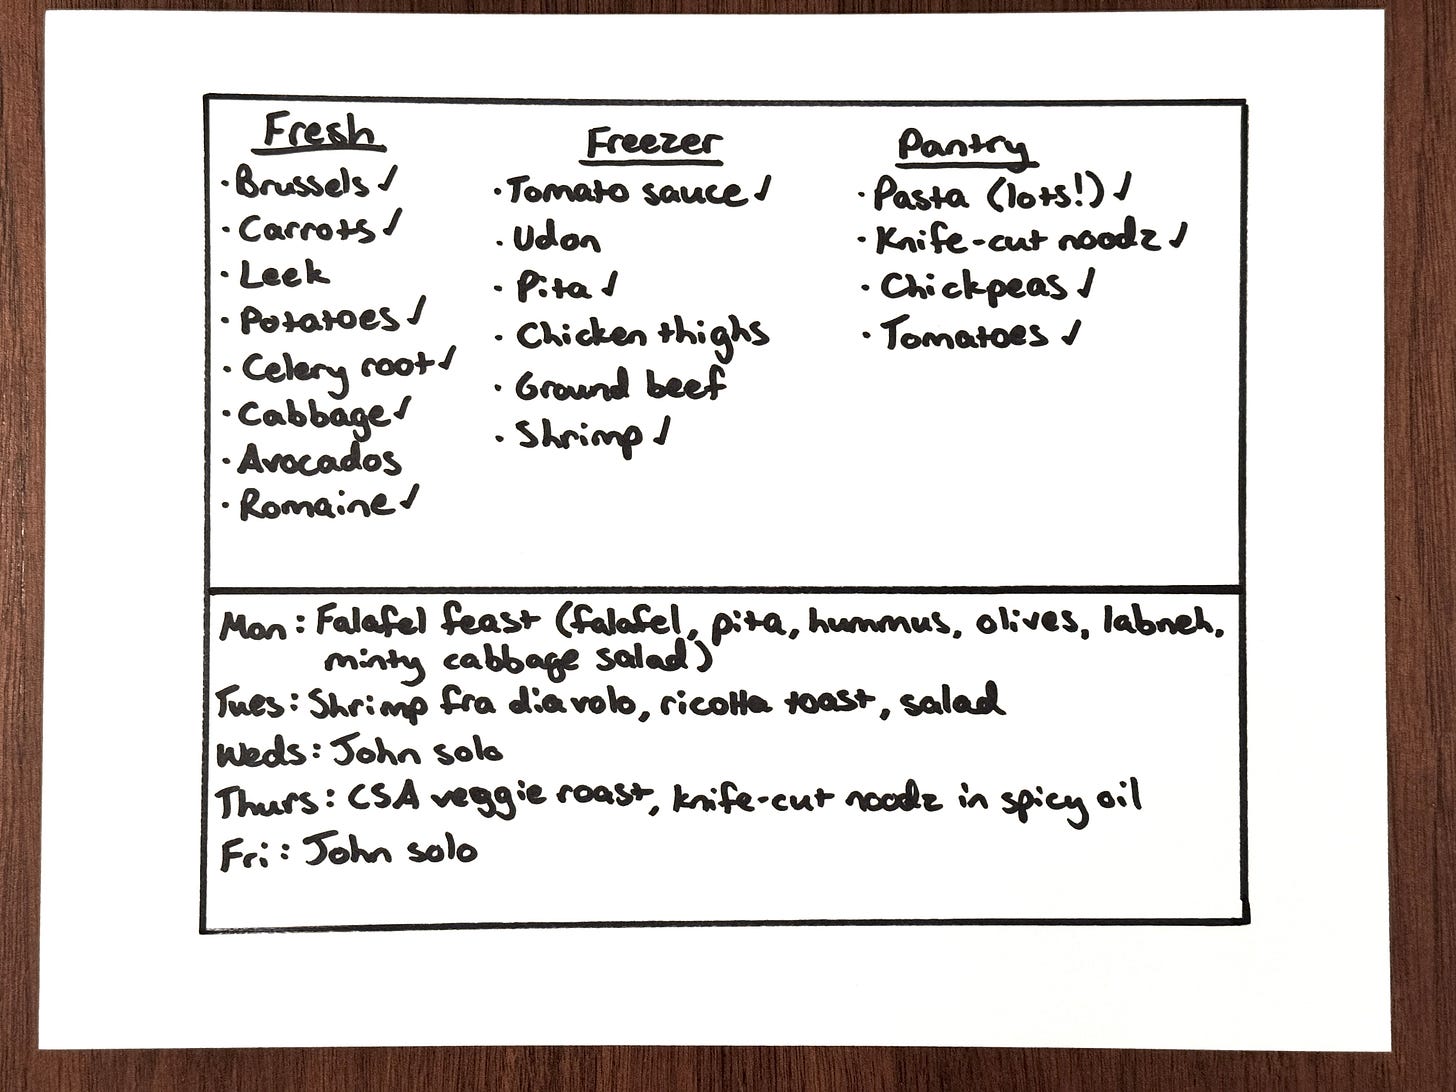 Fresh
· Brussels ✓
· Carrots ✓
· Leek
· Potatoes ✓
· Celery root ✓
· Cabbage ✓
· Avocados
· Romaine ✓
Freezer
· Tomato sauce ✓
· Udon
· Pita ✓
· Chicken thighs
· Ground beef
· Shrimp ✓
Pantry
· Pasta (lots!) ✓
· Knife-cut noodz ✓
· Chickpeas ✓
· Tomatoes ✓
Mon: Falafel feast (falafel, pita, hummus, olives, labneh,
minty cabbage salad)
Tues: Shrimp fra diavolo, ricotta toast, salad
Weds: John solo
Thurs: CSA veggie roast, knife-cut noodz in spicy oil
Fri: John solo